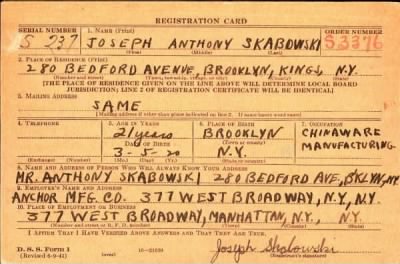 REGISTRATION CARD
SERIAL NUMBER 1. NAME (Print) ORDER NUMBER
S 237 JOSEPH ANTHONY SKABOWSKI S3376
(First) (Middle) (Last)
2. PLACE OF RESIDENCE (Print)
280 BEDFORD AVENUE, BROOKLYN, KINGS, N.Y.
(Number and street) (Town, township, village, or city) (County) (State)
[THE PLACE OF RESIDENCE GIVEN ON THE LINE ABOVE WILL DETERMINE LOCAL BOARD
JURISDICTION; LINE 2 OF REGISTRATION CERTIFICATE WILL BE IDENTICAL]
3. MAILING ADDRESS
SAME
[Mailing address if other than place indicated on line 2. If same insert word same]
4. TELEPHONE 5. AGE IN YEARS 6. PLACE OF BIRTH 7. OCCUPATION
21 years BROOKLYN CHINAWARE
DATE OF BIRTH MANUFACTURING
3-5-20 N.Y.
8. NAME AND ADDRESS OF PERSON WHO WILL ALWAYS KNOW YOUR ADDRESS
MR. ANTHONY SKABOWSKI 280 BEDFORD AVE, BKLYN, NY.
9. EMPLOYER'S NAME AND ADDRESS
ANCHOR MFG. CO. 377 WEST BROADWAY, N.Y., N.Y.
10. PLACE OF EMPLOYMENT OR BUSINESS
377 WEST BROADWAY, MANHATTAN, N.Y., N.Y.
(Number and street or R. F. D. number) (Town) (County) (State)
I AFFIRM THAT I HAVE VERIFIED ABOVE ANSWERS AND THAT THEY ARE TRUE.
D. S. S. Form 1
(Revised 6-9-41) (over) 16-21630 Joseph Skabowski